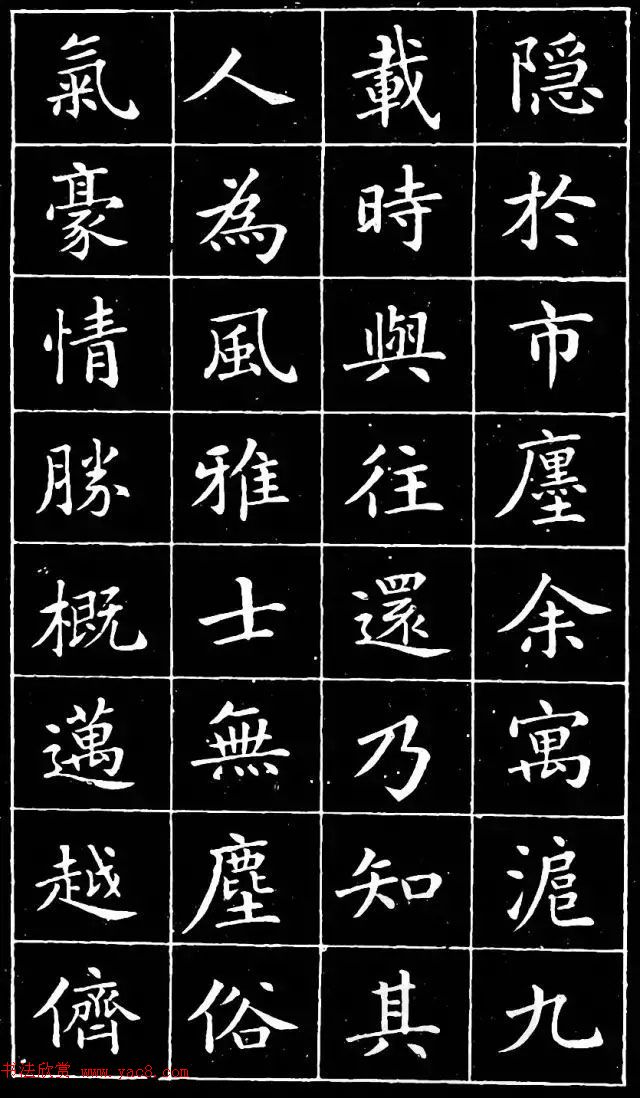 隠於市廛余寓滬九
載時與往還乃知其
人為風雅士無塵俗
氣豪情勝概邁越儕
书法欣赏 www.yac8.com